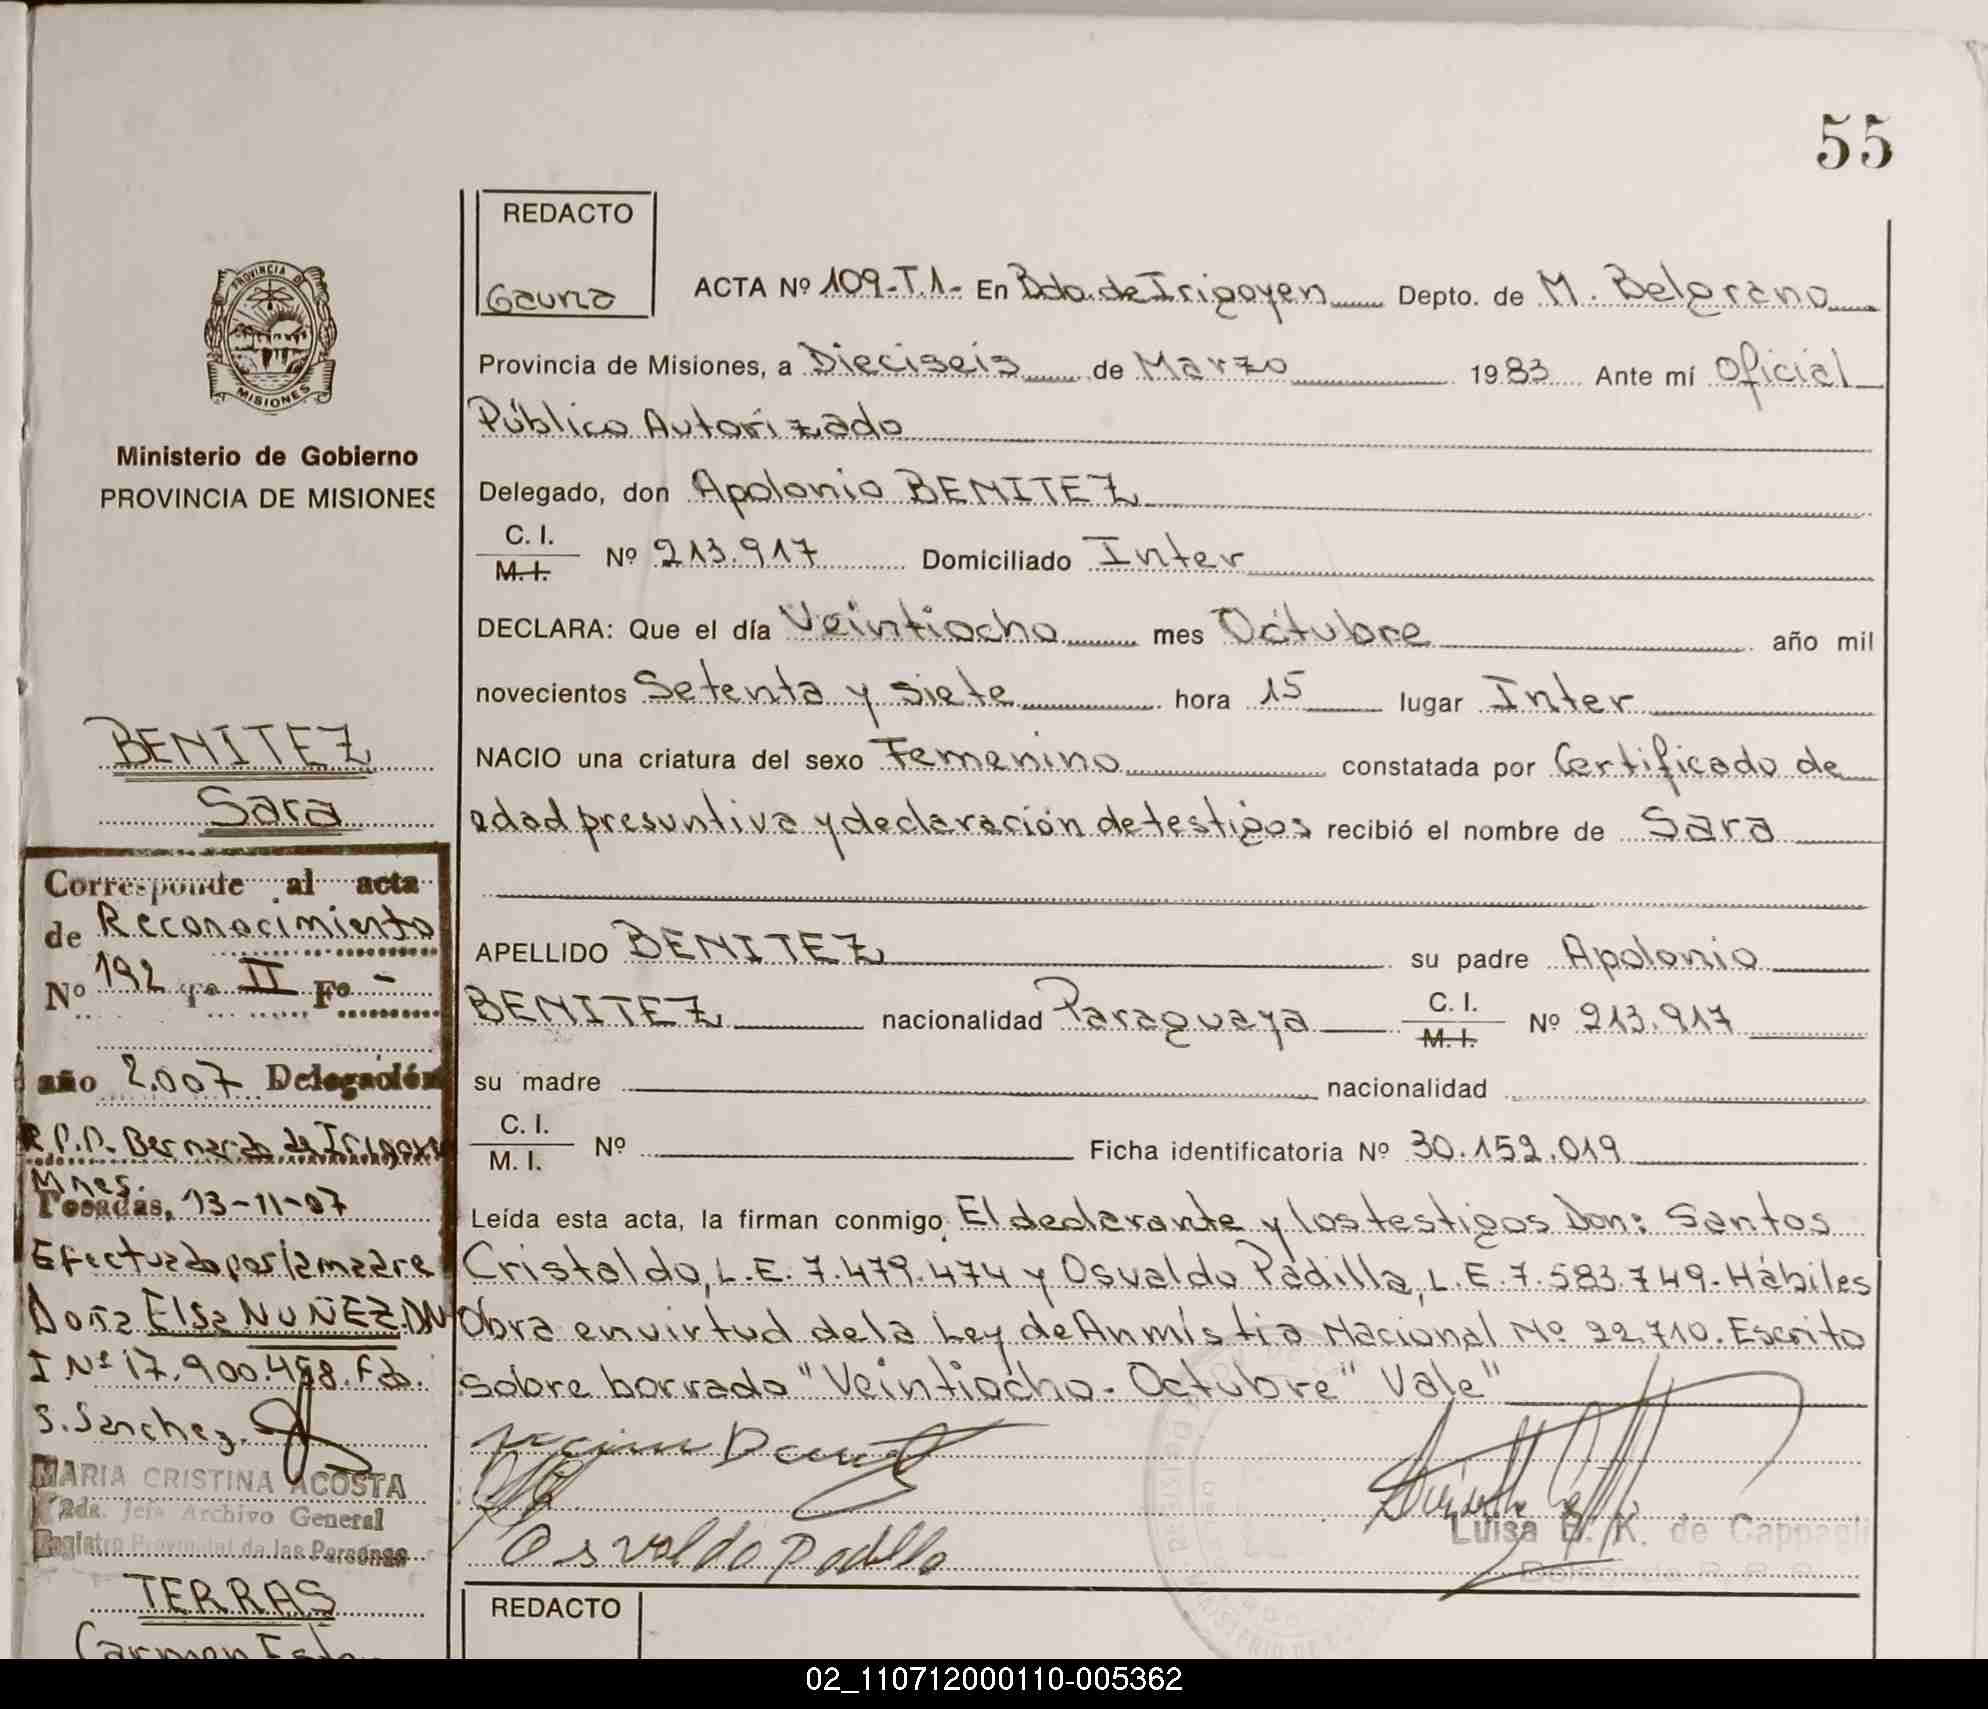 55
REDACTO
Gauna
ACTA Nº 109-T.1- En Bdo. de Irigoyen Depto. de M. Belgrano
Provincia de Misiones, a Dieciseis de Marzo 1983 Ante mí Oficial
Público Autorizado
Delegado, don Apolonio BENITEZ
C. I.
M. I. Nº 213.917 Domiciliado Inter
DECLARA: Que el día Veintiocho mes Octubre año mil
novecientos Setenta y siete hora 15 lugar Inter
NACIO una criatura del sexo Femenino constatada por Certificado de
edad presuntiva y declaración de testigos recibió el nombre de Sara
APELLIDO BENITEZ su padre Apolonio
BENITEZ nacionalidad Paraguaya C. I. M. I. Nº 213.917
su madre nacionalidad
C. I.
M. I. Nº Ficha identificatoria Nº 30.152.019
Leída esta acta, la firman conmigo, El declarante y los testigos Don: Santos
Cristaldo, L.E. 7.479.474 y Osvaldo Padilla, L.E. 7.583.749- Hábiles
Obra en virtud de la Ley de Anmistia Nacional Nº 22.710. Escrito
sobre borrado "Veintiocho- Octubre" Vale"
Osvaldo Padilla
Luisa E. K. de Cappagli
REDACTO
PROVINCIA DE
MISIONES
Ministerio de Gobierno
PROVINCIA DE MISIONES
BENITEZ
Sara
Corresponde al acta
de Reconocimiento
Nº 192 Tº II Fº -
año 2.007 Delegación
R.P.P. Bernardo de Irigoyen
Mnes.
Posadas, 13-11-07
Efectuado por la madre
Doña Elsa NUÑEZ. DN
I Nº 17.900.498. Fdo.
S. Sanchez.
MARIA CRISTINA ACOSTA
Jefa Archivo General
Registro Provincial de las Personas
TERRAS
Carmen
02_110712000110-005362